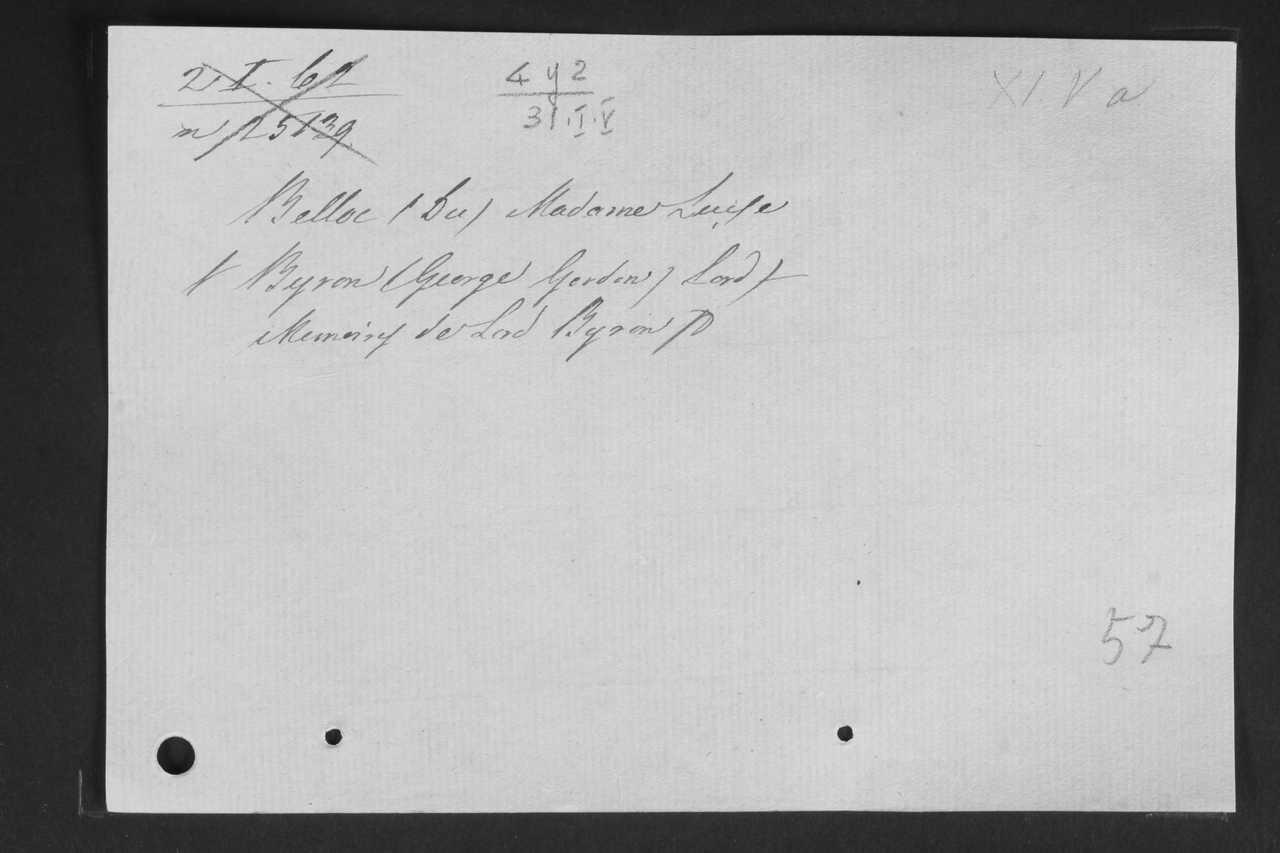 2. I. 62
nº 25139
4 y 2
31.I.V
XI V a
Belloc (Su) Madame Luise
+ Byron (George Gordon) Lord +
Memoires de Lord Byron
57